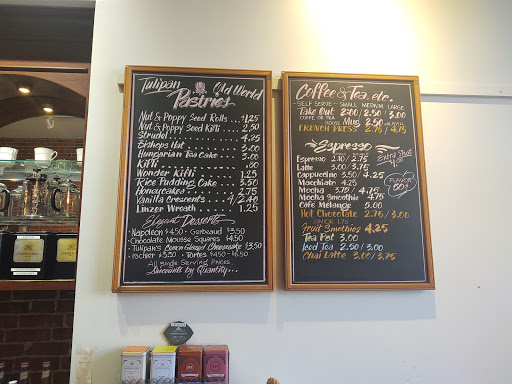 Tulipan Old World
Pastries
Nut & Poppy Seed Rolls .. 1.25
Nut & Poppy Seed Kifli ... 2.50
Strudel ... 4.25
Bishops Hat ... 3.00
Hungarian Tea Cake .. 3.00
Kifli ... .00
Wonder Kifli ... 1.25
Rice Pudding Cake ... 3.50
Honeycakes ... 2.75
Vanilla Crescents ... 4/2.40
Linzer Wreath ... 1.25
Elegant Desserts
Napoleon $4.50 • Gerbeaud $3.50
• Chocolate Mousse Squares $4.50
• Tulipan's Lemon Glazed Cheesecake $3.50
• Tortes $4.50-$6.50
All Single Serving Prices
Discounts by Quantity...
Coffee & Tea, etc.
SELF SERVE - SMALL MEDIUM LARGE
Take Out 2.00/2.50/3.00
COFFEE OR TEA
HOUSE Mug 2.50
FRENCH PRESS 2.75/4.75
Espresso
Espresso 2.10/2.75
Latte 3.00/3.75
Cappuccino 3.50/4.25
Macchiato 4.25
Mocha 3.75/4.75
Mocha Smoothie 4.75
Cafe Melange 5.00
Hot Chocolate 2.75/3.00
JUNIOR 1.75
Fruit Smothies 4.25
Tea Pot 3.00
Iced Tea 2.50/3.00
Chai Latte 3.00/3.75
Extra Shot
.50¢